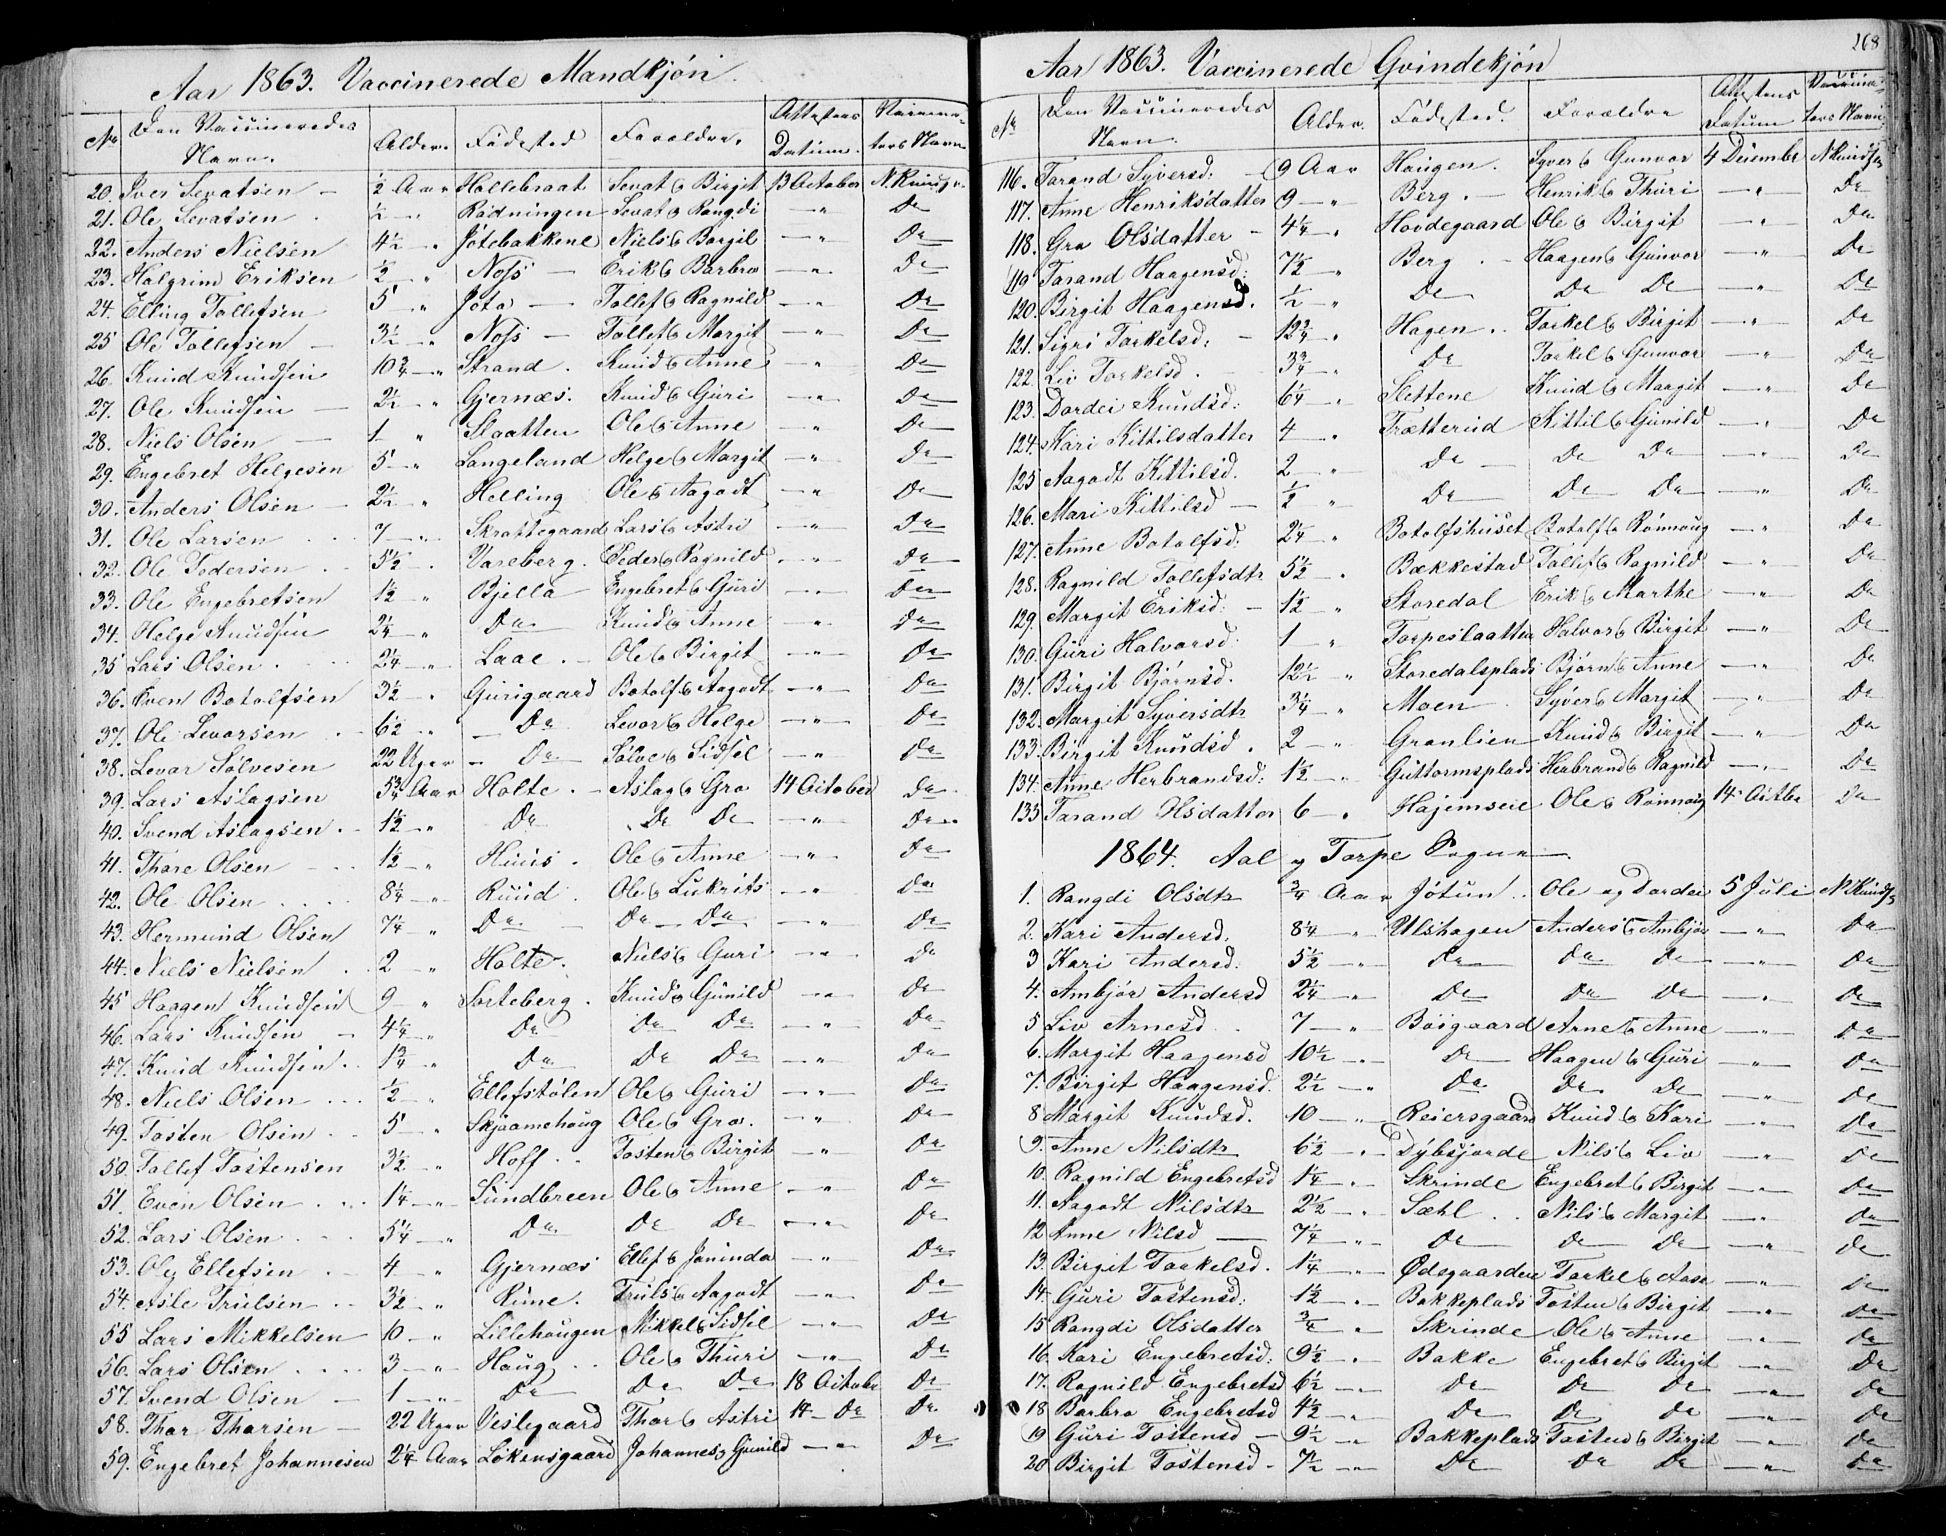 Aar 1863. Vaccinerede Mandkjøn.
No Den Vaccineredes Navn. Alder. Fødested Forældre. Attestens Datum. Vaccinators Navn
20. Iver Sevatsen ½ Aar Hollebraat Sevat & Birgit 13 October N. Knudsen
21. Ole Sevatsen ½ " Rødningen Sevat & Rangdi — " — Do
22. Anders Nielsen 4½ " Jøtebakkene Niels & Bergit — " — Do
23. Halgrim Eriksen ½ " Noss — Erik & Barbro — " — Do
24. Elling Tollefsen 5 " Jøto — Tollef & Ragnild — " — Do
25 Ole Tollefsen — 3½ " Noss — Tollef & Margit — " — Do
26. Knud Knudsen 10¾ " Strand. Knud & Anne — " — Do
27. Ole Knudsen — 2½ " Gjernæs. Knud & Guri — " — Do
28. Niels Olsen — 1 " Slaatten Ole & Anne — " — Do
29. Engebret Helgesen 5 " Langeland Helge & Margit — " — Do
30. Anders Olsen — 2½ " Helling Ole & Aagodt — " — Do
31. Ole Larsen 7 " Skrattegaard Lars & Astri — " — Do
32. Ole Pedersen 5½ " Vareberg. Peder & Ragnild — " — Do
33. Ole Engebretsen 1½ " Bjella Engebret & Guri — " — Do
34. Helge Knudsen 2¼ " Do Knud & Anne — " — Do
35 Lars Olsen. 2¼ " Laae. — Ole & Birgit — " — Do
36. Even Botolfsen 3½ " Gurigaard Botolf & Aagodt — " — Do
37. Ole Levorsen 6½ " Do Levor & Helge — " — Do
38. Levor Sølvesen 22 Uger — Do Sølve & Sidsel — " — Do
39. Lars Aslagsen 5¾ Aar Holte. — Aslag & Gro 14 October Do
40. Svend Aslagsen. 1½ " Do Do Do — " — Do
41. Thore Olsen 1½ " Huus. Ole & Anne — " — Do
42. Ole Olsen 8¼ " Ruud. Ole & Lukrits — " — Do
43. Hermund Olsen 7¼ " Do Do Do — " — Do
44. Niels Nielsen 2 " Holte. Niels & Guri — " — Do
45 Haagen Knudsen 9 " Sorteberg. Knud & Gunild — " — Do
46. Lars Knudsen 4¼ " Do Do Do — " — Do
47. Knud Knudsen. 1¾ " Do Do Do — " — Do
48. Niels Olsen ½ " Ellefstølen Ole & Guri — " — Do
49. Tosten Olsen 5 " Skjaamehoug Ole & Gro. — " — Do
50. Tollef Tostensen 3½ " Hoff. Tosten & Birgit — " — Do
51. Even Olsen 1¼ " Sundbreen Ole & Anne — " — Do
52. Lars Olsen 5¼ " Do Do Do — " — Do
53. Ole Ellefsen 4 " Gjernæs Ellef & Janinda — " — Do
54. Asle Trulsen 3½ " Rime. Truls & Aagodt — " — Do
55 Lars Mikkelsen 10 " Lillehougen Mikkel & Sidsel — " — Do
56. Lars Olsen 3 " Haug Ole & Thuri — " — Do
57. Svend Olsen — 1 " Do Do Do 18 October Do
58. Thor Thorsen — 22 Uger Veslegaard Thor & Astri 14 — Do Do
59. Engebret Johannesen 2¼ Aar Løkensgaard Johannes & Gunild — " — Do
268
Aar 1863. Vaccinerede Qvindekjøn
No Den Vaccineredes Navn. Alder. Fødested. Forældre Attestens Datum Vaccinators Navn
116. Torand Syversd: — 9 Aar Haugen. Syver & Gunvor 4 Desember N Knudsen
117. Anne Henriksdatter 9 — " Berg. — Henrik & Thuri — " Do
118. Gro Olsdatter — 4¼ " Hovdegaard Ole & Birgit — " Do
119 Torand Haagensd: 7½ " Berg. — Haagen & Gunvor — " Do
120. Birgit Haagensd. ½ " Do Do Do — " Do
121. Sigri Torkelsd: — 12¾ " Hagen. Torkel & Birgit — " Do
122. Liv Torkelsd. 3¾ " Do Torkel & Gunvor — " Do
123. Dordei Knudsd: 6¼ " Slettene Knud & Margit — " Do
124. Kari Kittilsdatter 4 " Trætterud Kittil & Gunild — " Do
125 Aagodt Kittilsd. 2 — " Do Do Do — " Do
126. Mari Kittilsd — ½ " Do Do Do — " Do
127. Anne Botolfsd: 2¼ " Botolfshuset Botolf & Rønnoug — " Do
128. Ragnild Tollefsdtr 5½ " Bækkestad Tollef & Ragnild — " Do
129. Margit Eriksd: — 1½ " Storedal Erik & Marthe — " Do
130. Guri Halvorsd: 1 " Torpeslaatten Halvor & Birgit — " Do
131. Birgit Bjørnsd. 12½ " Storedalsplads Bjørn & Anne — " Do
132. Margit Syversdtr 3¼ " Moen. Syver & Margit — " Do
133. Birgit Knudsd. 2 — " Granlien Knud & Birgit — " Do
134. Anne Herbrandsd: 1½ " Guttormsplads Herbrand & Ragnild — " Do
135 Torand Olsdatter 6 — " Hajemseie Ole & Rønnoug 14 Octbr Do
1864. Aal og Torpe Sogne
1. Rangdi Olsdtr ¾ Aar Jøtun. Ole og Dordei 5 Juli N Knudsen
2. Kari Andersd. 8¼ " Ulshagen Anders & Ambjør — " Do
3 Kari Andersd: 5½ — " Do Do Do — " Do
4. Ambjør Andersd 2¼ " Do Do Do — " Do
5 Liv Arnesd 7 — " Bøigaard Arne & Anne — " Do
6. Margit Haagensd 10½ — " Do Haagen & Guri — " Do
7. Birgit Haagensd. 2½ — " Do Do Do — " Do
8 Margit Knudsd. 10 — " Reiersgaard Knud & Kari — " Do
9. Anne Nilsdtr 6½ — " Dybsjorde Nils & Liv — " Do
10. Ragnild Engebretsd 1¼ — " Skrinde Engebret & Birgit — " Do
11. Aagodt Nilsdtr 2½ — " Sæhl. Nils & Margit — " Do
12 Anne Nilsd — 7¼ — " Do Do Do — " Do
13. Birgit Torkelsd. 1¼ — " Ødegaarden Torkel & Aase — " Do
14. Guri Tostensd: 1½ — " Bakkeplads Tosten & Birgit — " Do
15 Rangdi Olsdatter ¾ " Skrinde Ole & Anne — " Do
16. Kari Engebretsd: 9½ — " Bakke Engebret & Birgit — " Do
17. Ragnild Engebretsd 6½ — " Do Do Do — " Do
18 Barbro Engebretsd 4½ — " Do Do Do — " Do
19 Guri Tostensd — 9½ — " Bakkeplads Tosten & Birgit — " Do
20 Birgit Tostensd — 7½ — " Do Do Do — " Do